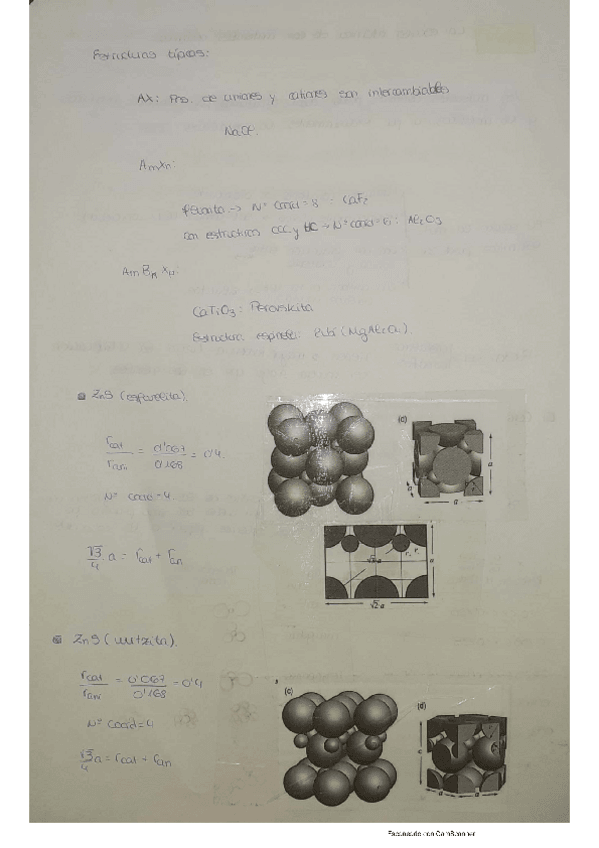 Formulas típicas:
AX: Pos. de aniones y cationes son intercambiables
NaCl.
AmXn:
Fluorita → Nº coord = 8 : CaF2
con estructuras CCC y HC → Nº coord = 6 : Al2O3
AmBmXn:
CaTiO3 : Perovskita
Estructura espinela: rubí (MgAl2O4).
ZnS (esfarelita).
rcat / ran = 0'067 / 0'168 = 0'4.
(c)
Nº coord = 4.
a
a
√3/4 · a = rcat + ran
√2·a
a
√2·a
ZnS (wurtzita).
rcat / rani = 0'067 / 0'168 = 0'4
(c)
(d)
Nº coord = 4
√3/4 a = rcat + ran
c
a
a
Escaneado con CamScanner